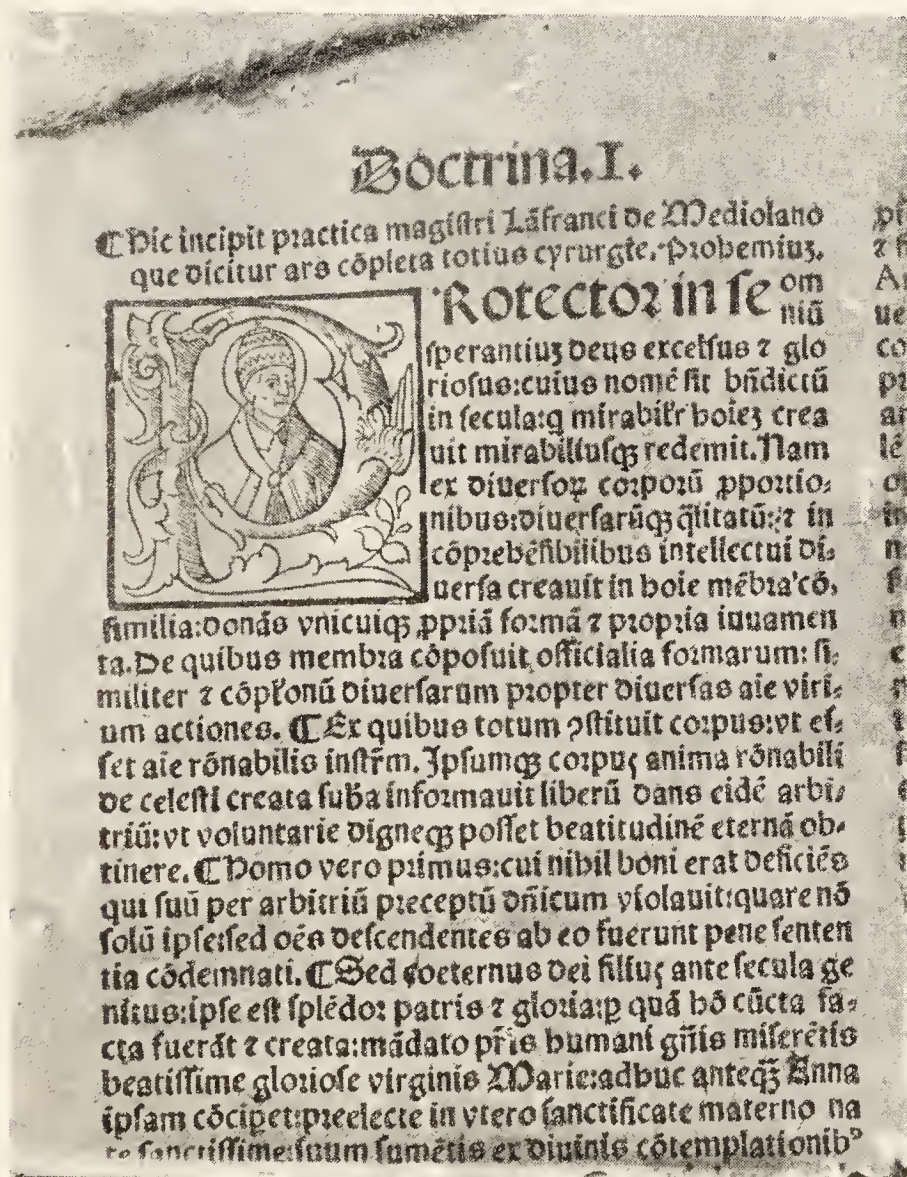 Doctrina.I.
¶Hic incipit practica magistri Lãfranci de Mediolano
que dicitur ars cõpleta totius cyrurgie. Prohemiuʒ.
PRotector in se om
niũ
sperantiuʒ deus excelsus ⁊ glo
riosus:cuius nomẽ sit bñdictũ
in secula:q mirabilʼr hoieʒ crea
uit mirabiliusqʒ redemit.Nam
ex diuersoꝝ corporũ ꝓportio⸗
nibus:diuersarũqʒ q̃litatũ:⁊ in
cõprehẽsibilibus intellectui di⸗
uersa creauit in hoie mẽbra cõ⸗
similia:donãs vnicuiqʒ ꝓpriã formã ⁊ propria iuuamen
ta.De quibus membra cõposuit officialia formarum: si⸗
militer ⁊ cõplʼonũ diuersarum propter diuersas aie viri⸗
um actiones. ¶Ex quibus totum ꝯstituit corpus:vt es⸗
set aie rõnabilis instrʼm.Ipsumqʒ corpuꝰ anima rõnabili
de celesti creata suba informauit liberũ dans eidẽ arbi⸗
triũ:vt voluntarie digneqʒ posset beatitudinẽ eternã ob⸗
tinere.¶Homo vero primus:cui nihil boni erat deficiẽs
qui suũ per arbitriũ preceptũ dñicum violauit:quare nõ
solũ ipse:sed oẽs descendentes ab eo fuerunt pene senten
tia cõdemnati.¶Sed coeternus dei filiuꝰ ante secula ge
nitus:ipse est splẽdor patris ⁊ gloria:ꝑ quã hõ cũcta fa⸗
cta fuerãt ⁊ creata:mãdato prʼis humani gñis miserẽtis
beatissime gloriose virginis Marie:adhuc anteqʒ̃ Anna
ipsam cõciꝑet:preelecte in vtero sanctificate materno na
te sanctissime:suum sumẽtis ex diuinis cõtemplationibꝰ